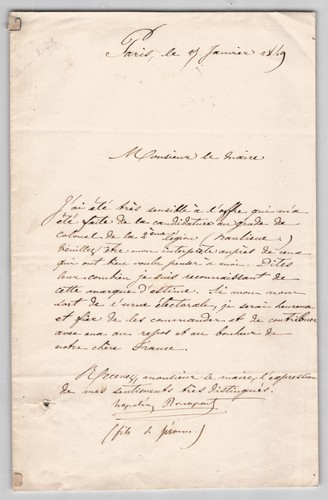 Paris, le 15 Janvier 1849
Monsieur le maire
J'ai été très sensible à l'offre qui m'a
été faite de la candidature au grade de
colonel de la 2ème légion (Banlieue)
Veuillez être mon interprète auprès de ceux
qui ont bien voulu penser à moi. Dites
leur combien je suis reconnaissant de
cette marque d'estime. Si mon nom
sort de l'urne électorale, je serai heureux
et fier de les commander et de contribuer
avec eux au repos et au bonheur de
notre chère France.
Recevez, monsieur le maire, l'expression
de mes sentiments très distingués.
Napoléon Bonaparte
(fils de Jérome)